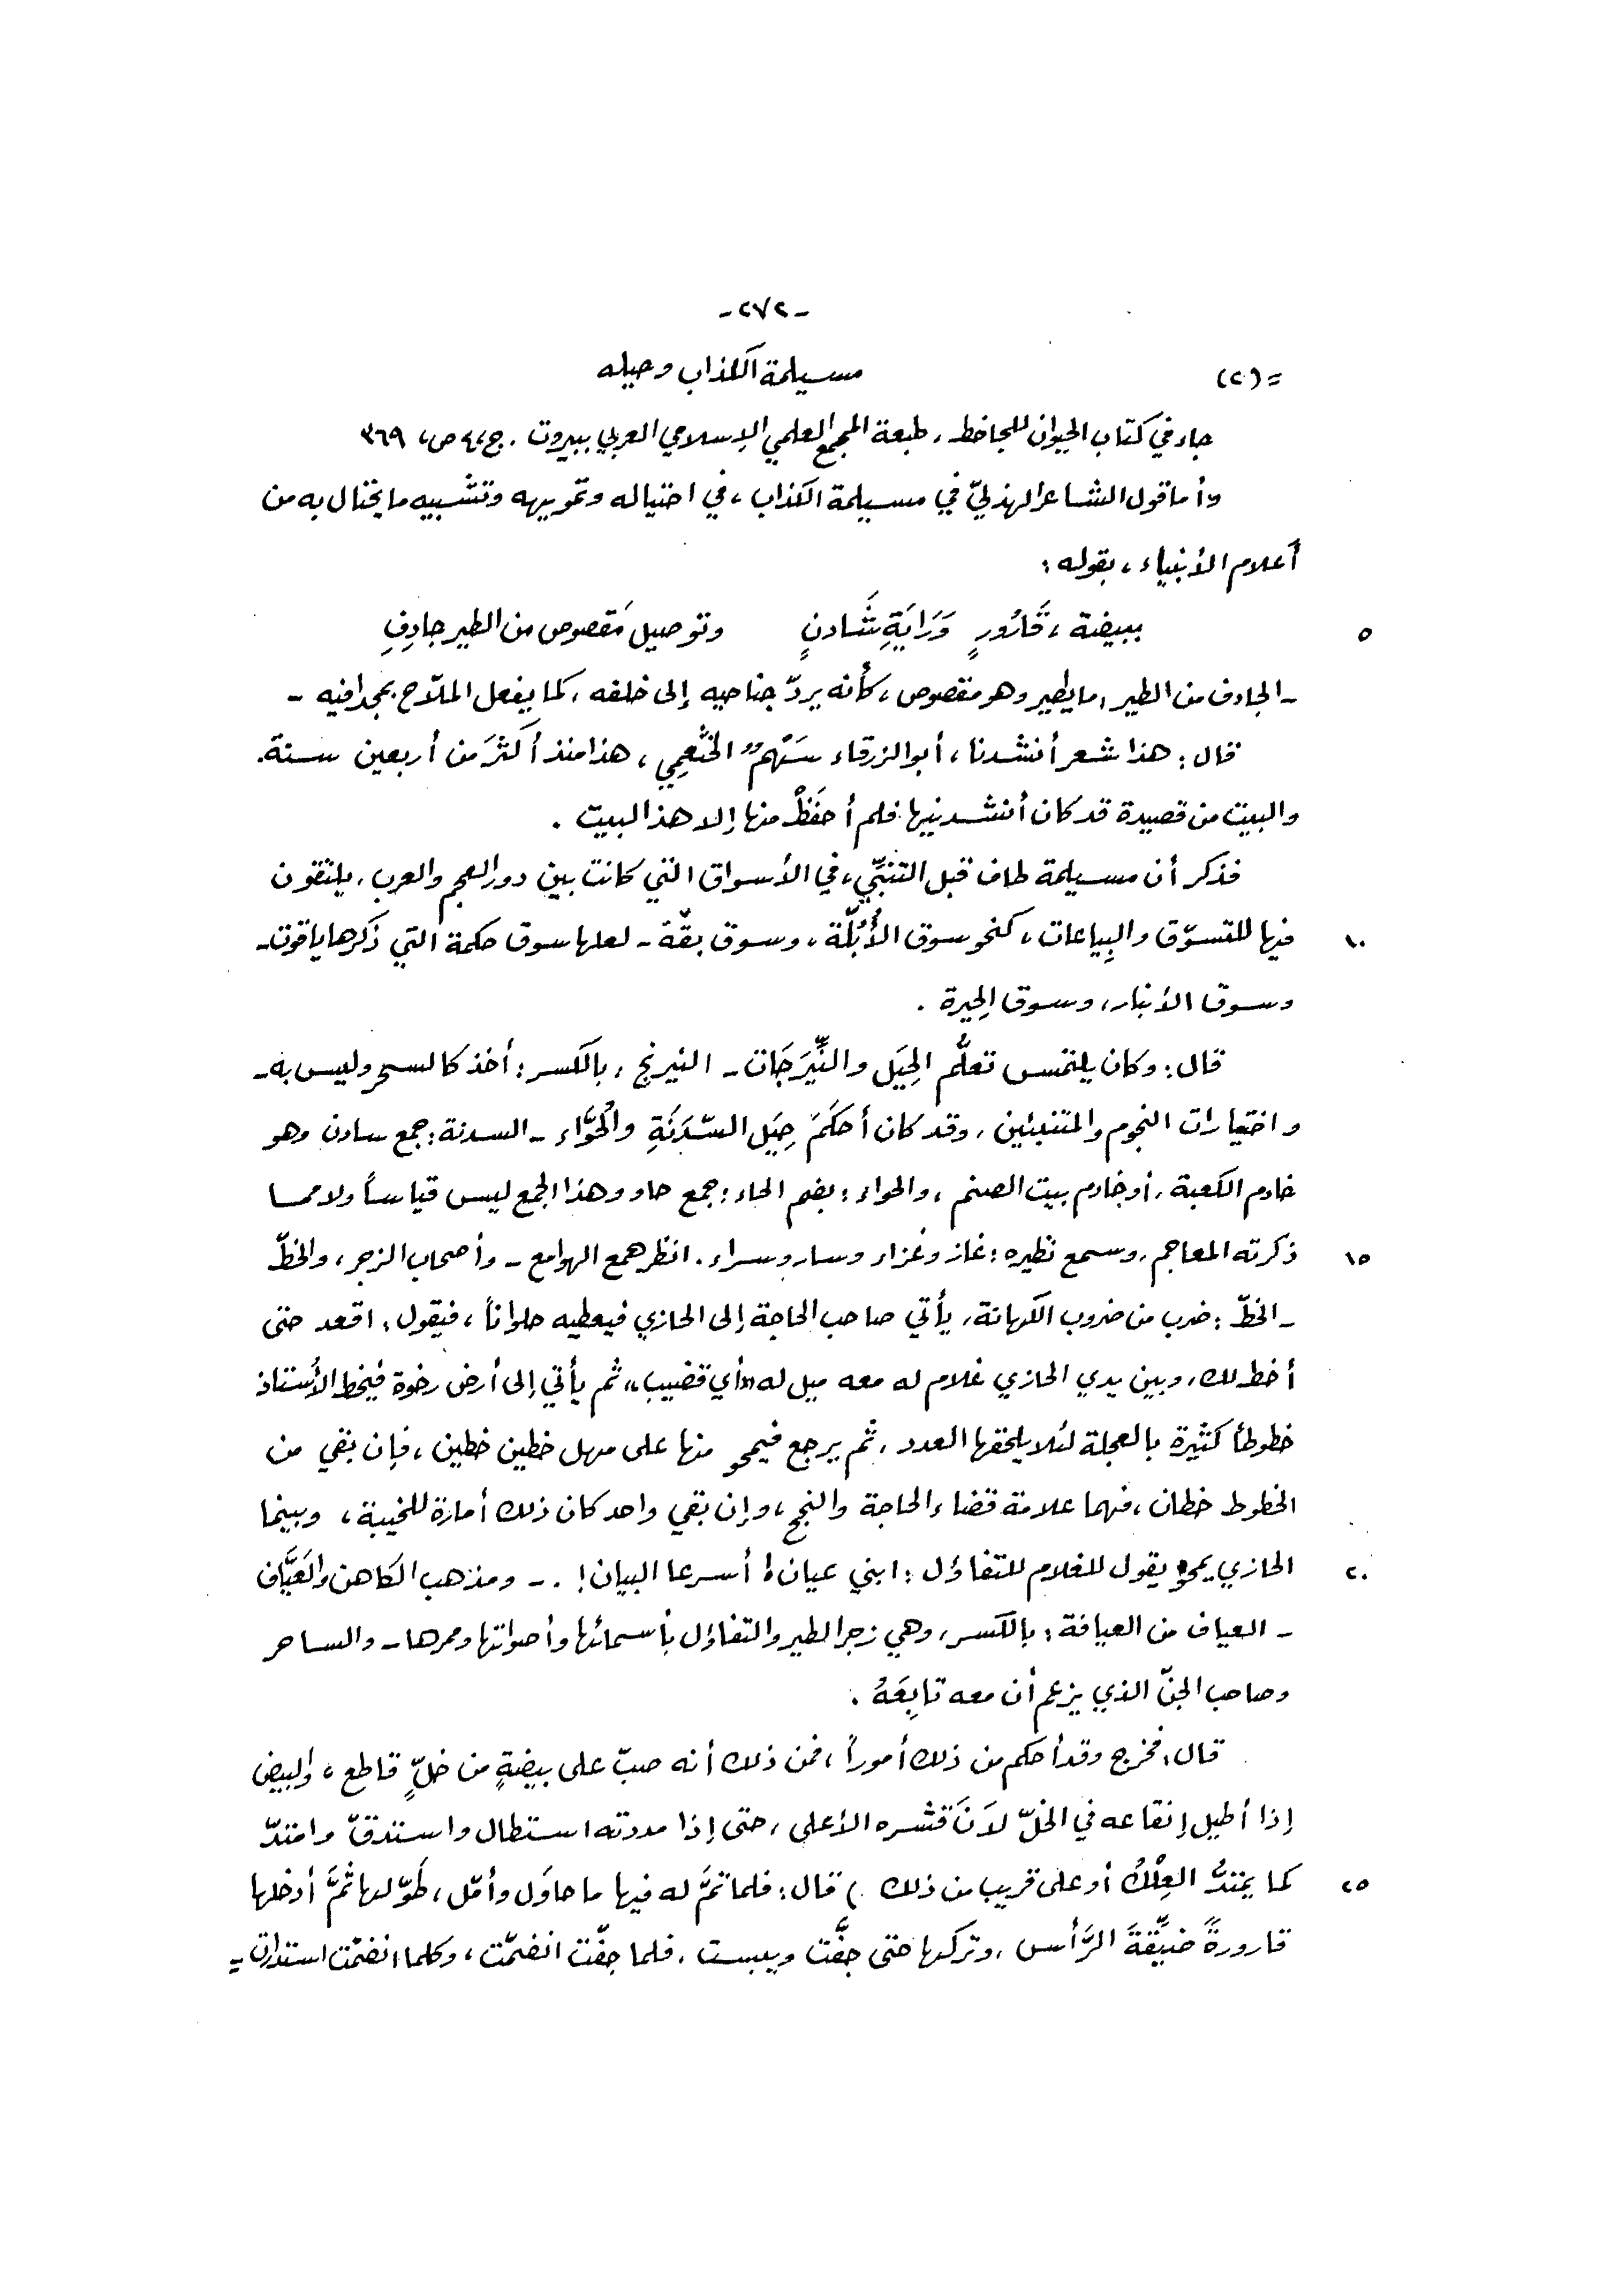 -٢٧٢-
=(٢) مسيلمة الكذاب وحيله
جاء في كتاب الحيوان للجاحظ، طبعة المجمع العلمي الإسلامي العربي ببيروت. ج،٤ ص، ٣٦٩
وأما قول الشاعر الهذليّ في مسيلمة الكذاب، في احتياله وتمويهه وتشبيه ما يحتال به من
أعلام الأنبياء، بقوله:
٥ ببيضة، قَارُورٍ وَرَايَةِ شَادنٍ وتوصيل مَقصوص من الطير جادِفِ
-الجادف من الطير، ما يطير وهو مقصوص، كأنه يردّ جناحيه إلى خلفه، كما يفعل الملاّح بمجدافيه -
قال: هذا شعر أنشدنا، أبو الزرقاء سَهْمٌ الخَثْعمِي، هذا منذ أكثَرَ من أربعين سنة.
والبيت من قصيدة قد كان أنشدنيها فلم أحفَظْ منها إلا هذا البيت.
فذكر أن مسيلمة طاف قبل التنبِّي، في الأسواق التي كانت بين دور العجم والعرب، يلتقون
١٠ فيها للتسوّق والبِياعات، كنحو سوق الأُبُلّة، وسوق بقّة - لعلها سوق حكمة التي ذكرها ياقوت-
وسوق الأنبار، وسوق الحِيرة.
قال: وكان يلتمس تعلُّم الحِيَل والنِّيَرجَات - النيرنج، بالكسر: أخذ كالسحر وليس به-
واختيارات النجوم والمتنبئين، وقد كان أحكَمَ حِيَل السّدَنَةِ والحُوَّاء - السدنة: جمع سادن وهو
خادم الكعبة، أو خادم بيت الصنم، والحواء: بضم الحاء: جمع حاو وهذا الجمع ليس قياساً ولا مما
١٥ ذكرته المعاجم، وسمع نظيره: غاز وغزاء وسار وسراء. انظر همع الهوامع - وأصحاب الزجر، والخطّ
-الخطّ: ضرب من ضروب الكهانة، يأتي صاحب الحاجة إلى الحازي فيعطيه حلواناً، فيقول: اقعد حتى
أخط لك، وبين يدي الحازي غلام له معه ميل له «أي قضيب» ثم يأتي إلى أرض رخوة فيخط الأستاذ
خطوطاً كثيرة بالعجلة لئلا يلحقها العدد، ثم يرجع فيمحو منها على مهل خطين خطين، فإن بقي من
الخطوط خطان، فهما علامة قضاء الحاجة والنجح، وإن بقي واحد كان ذلك أمارة للخيبة، وبينما
٢٠ الحازي يمحو يقول للغلام للتفاؤل: ابني عيان! أسرعا البيان! .- ومذهب الكاهن والعَيَّاف
- العياف من العيافة: بالكسر، وهي زجر الطير والتفاؤل بأسمائها وأصواتها وممرها- والساحر
وصاحب الجنّ الذي يزعم أن معه تابِعَهُ.
قال: فخرج وقد أحكم من ذلك أموراً، فمن ذلك أنه صبّ على بيضةٍ من خلٍّ قاطع، والبيض
إذا أطيل إنقاعه في الخلّ لاَنَ قشره الأعلى، حتى إذا مددته استطال واستدقّ وامتدّ
٢٥ كما يمتدُّ العِلْكُ أو على قريب من ذلك .) قال: فلما تمَّ له فيها ما حاوَل وأمّل، طَوّلها ثمَّ أدخلها
قارورةً ضيِّقةَ الرَّأس، وتركها حتى جفَّت ويبست، فلما جفّت انضمّت، وكلما انضمّت استدارت =